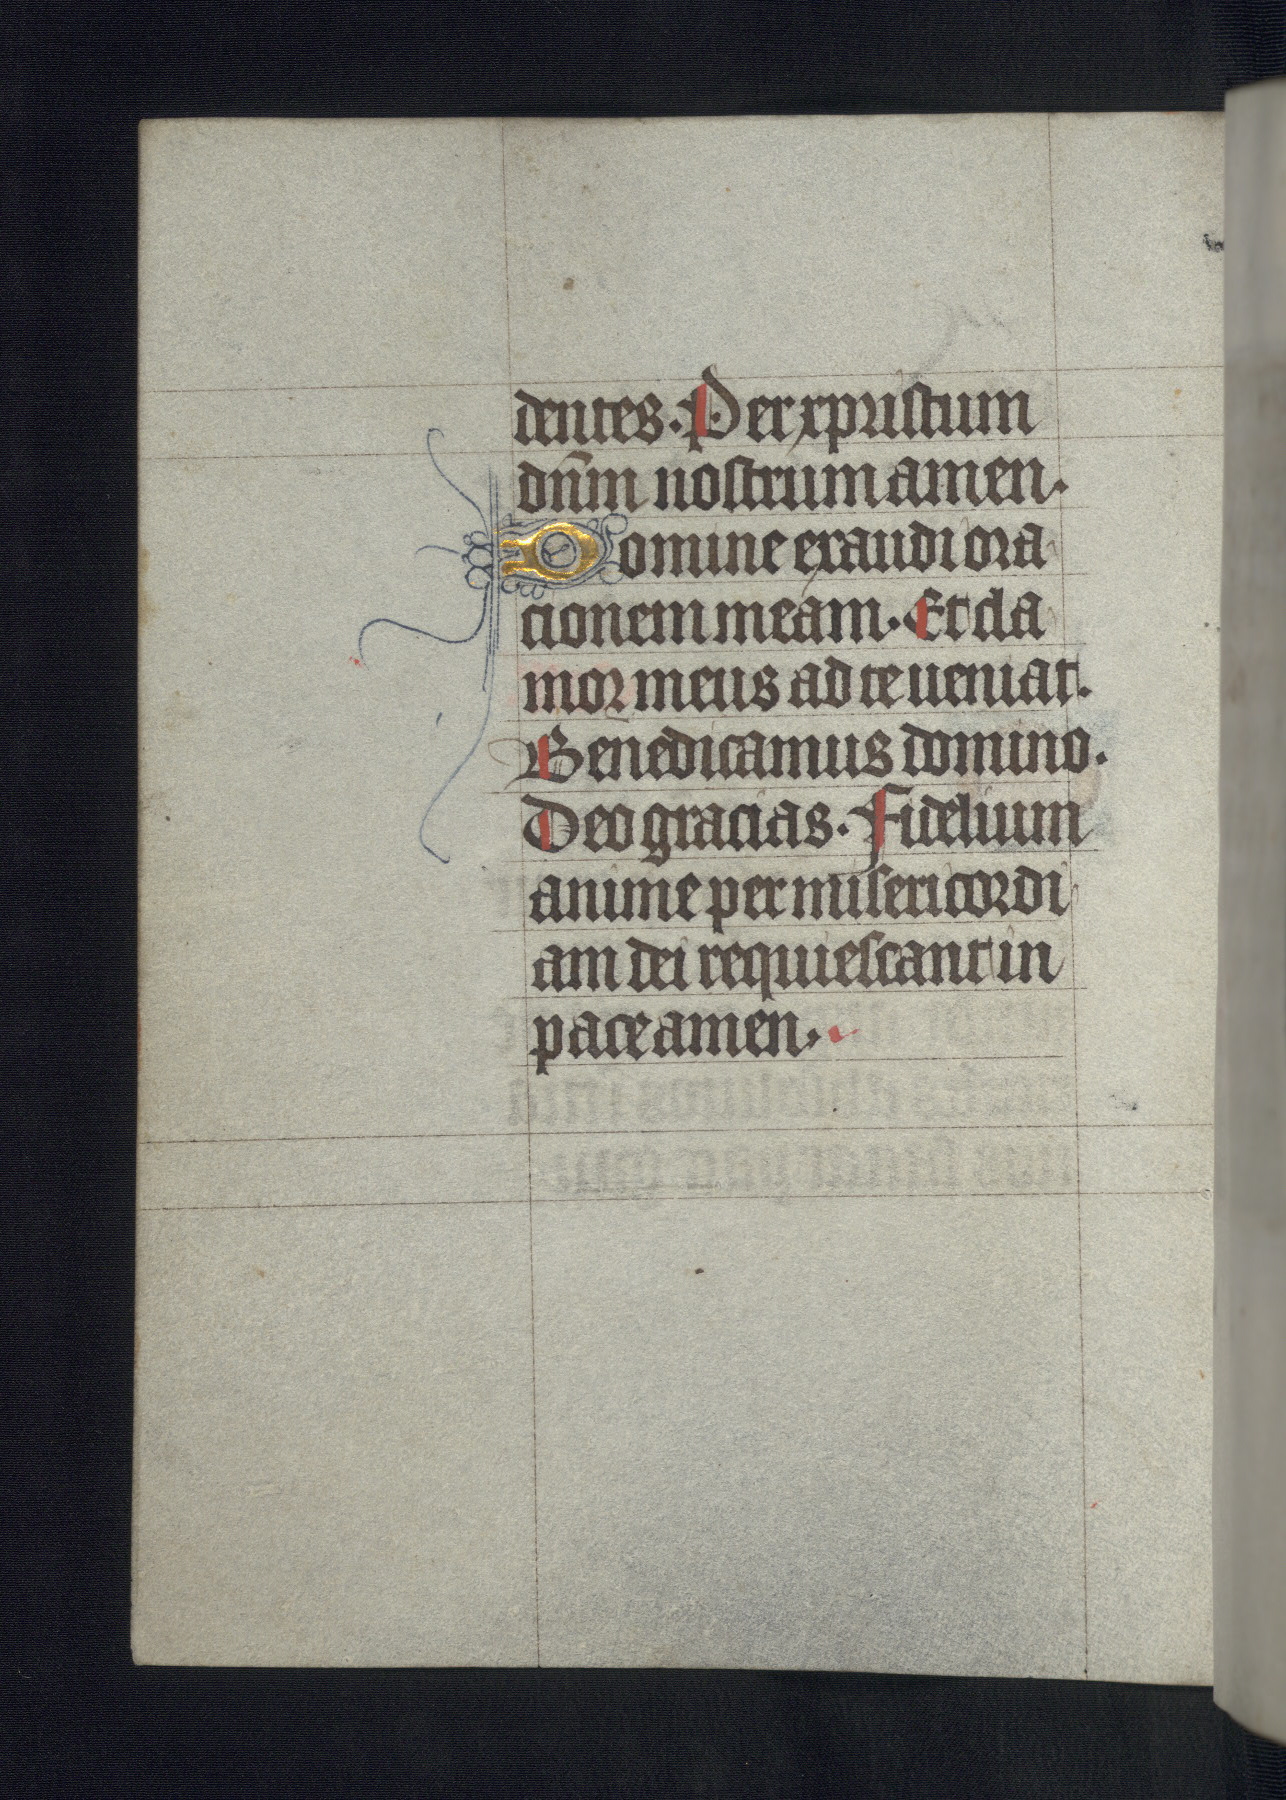 dentes. Per xpristum
dn̄m nostrum amen.
Domine exaudi ora
cionem meam. Et cla
mor meus ad te ueniat.
Benedicamus domino.
Deo gracias. Fidelium
anime per misericordi
am dei requiescant in
pace amen.